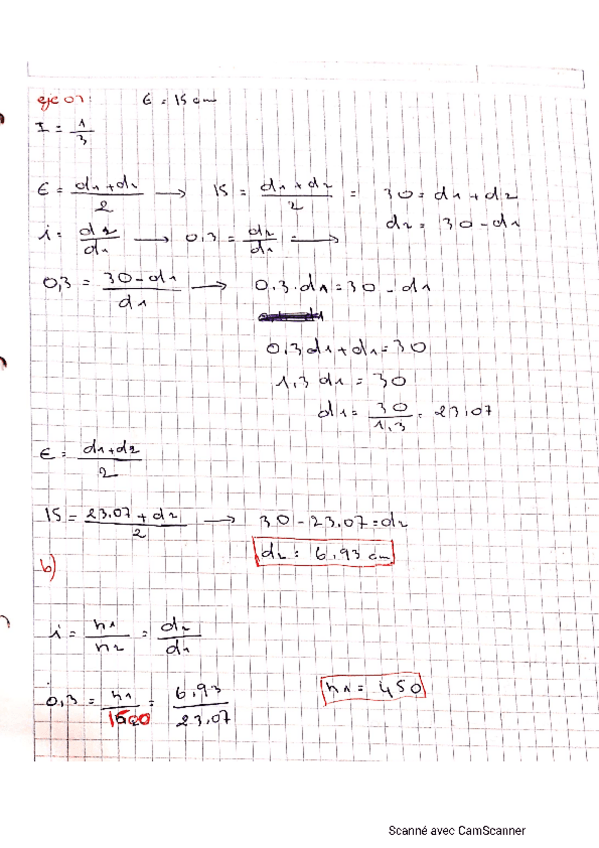 eje 01: E = 15 cm
I = 1/3
E = d1+d2/2 → 15 = d1+d2/2 = 30 = d1+d2
d2 = 30-d1
i = d2/d1 → 0,3 = d2/d1 →
0,3 = 30-d1/d1 → 0.3.d1=30-d1
0,3d1+d1=30
1,3 d1 = 30
d1 = 30/1,3 = 23.07
E = d1+d2/2
15 = 23.07+d2/2 → 30-23.07=d2
d2 = 6.93 cm
b)
i = n1/n2 = d2/d1
0,3 = n1/1500 = 6.93/23.07 n1 = 450
Scanné avec CamScanner